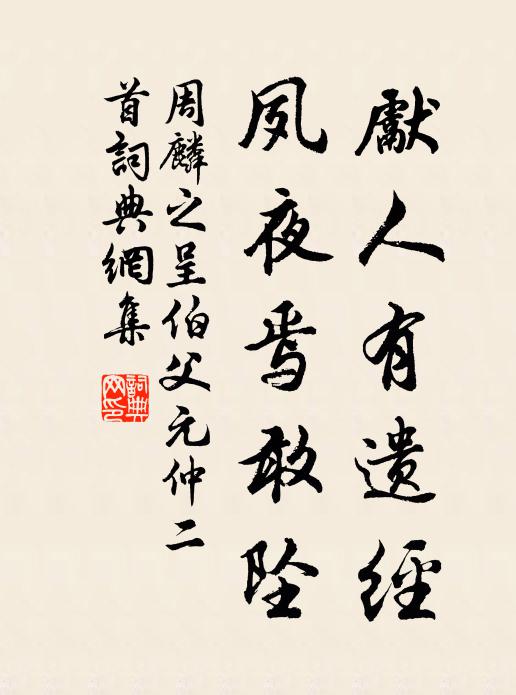 獻人有遺經
夙夜焉敢墜
周麟之呈伯父元仲二
首詞典網集
詞典網印